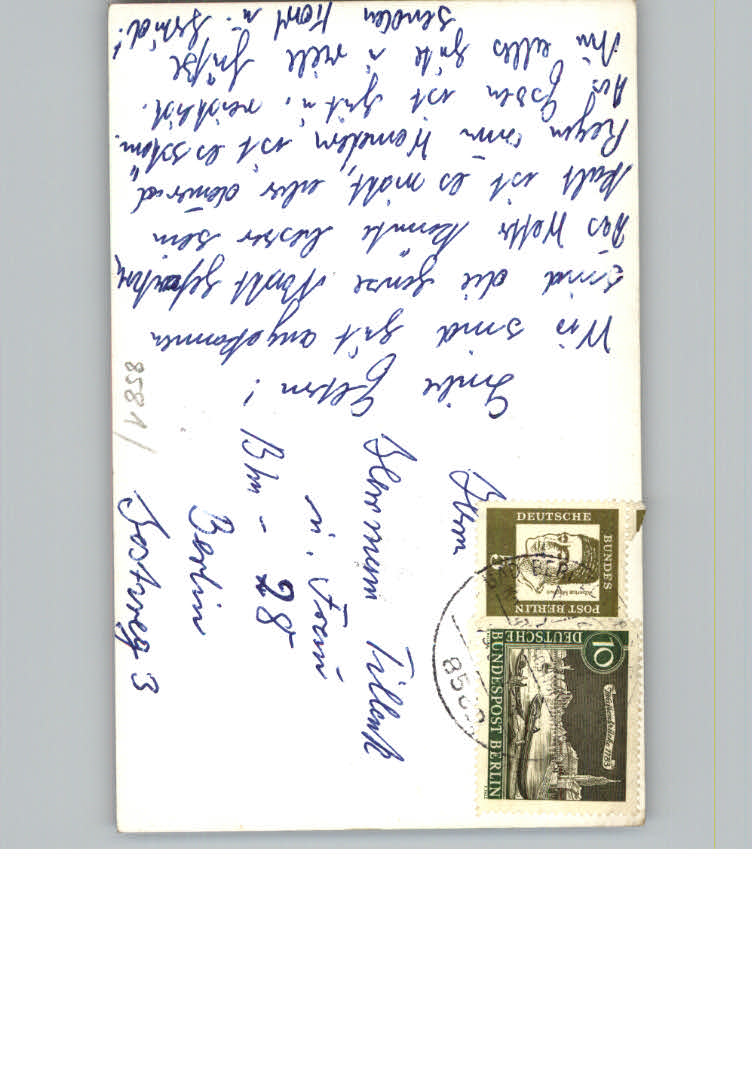 Liebe Eltern!
Wir sind gut angekommen
sind die ganze Nacht gefahren,
Das Wetter könnte besser sein
kalt ist es nicht, aber dauernd
Regen zum Wandern ist es schon.
Das Essen ist gut u. reichlich.
Nun alles Gute u. viele Grüße
senden Horst u.
Herrn
Hermann
u. Frau
Bln - 28
Berlin
3
8581/
DEUTSCHE
BUNDES
POST BERLIN
DEUTSCHE
BUNDESPOST BERLIN
10
858